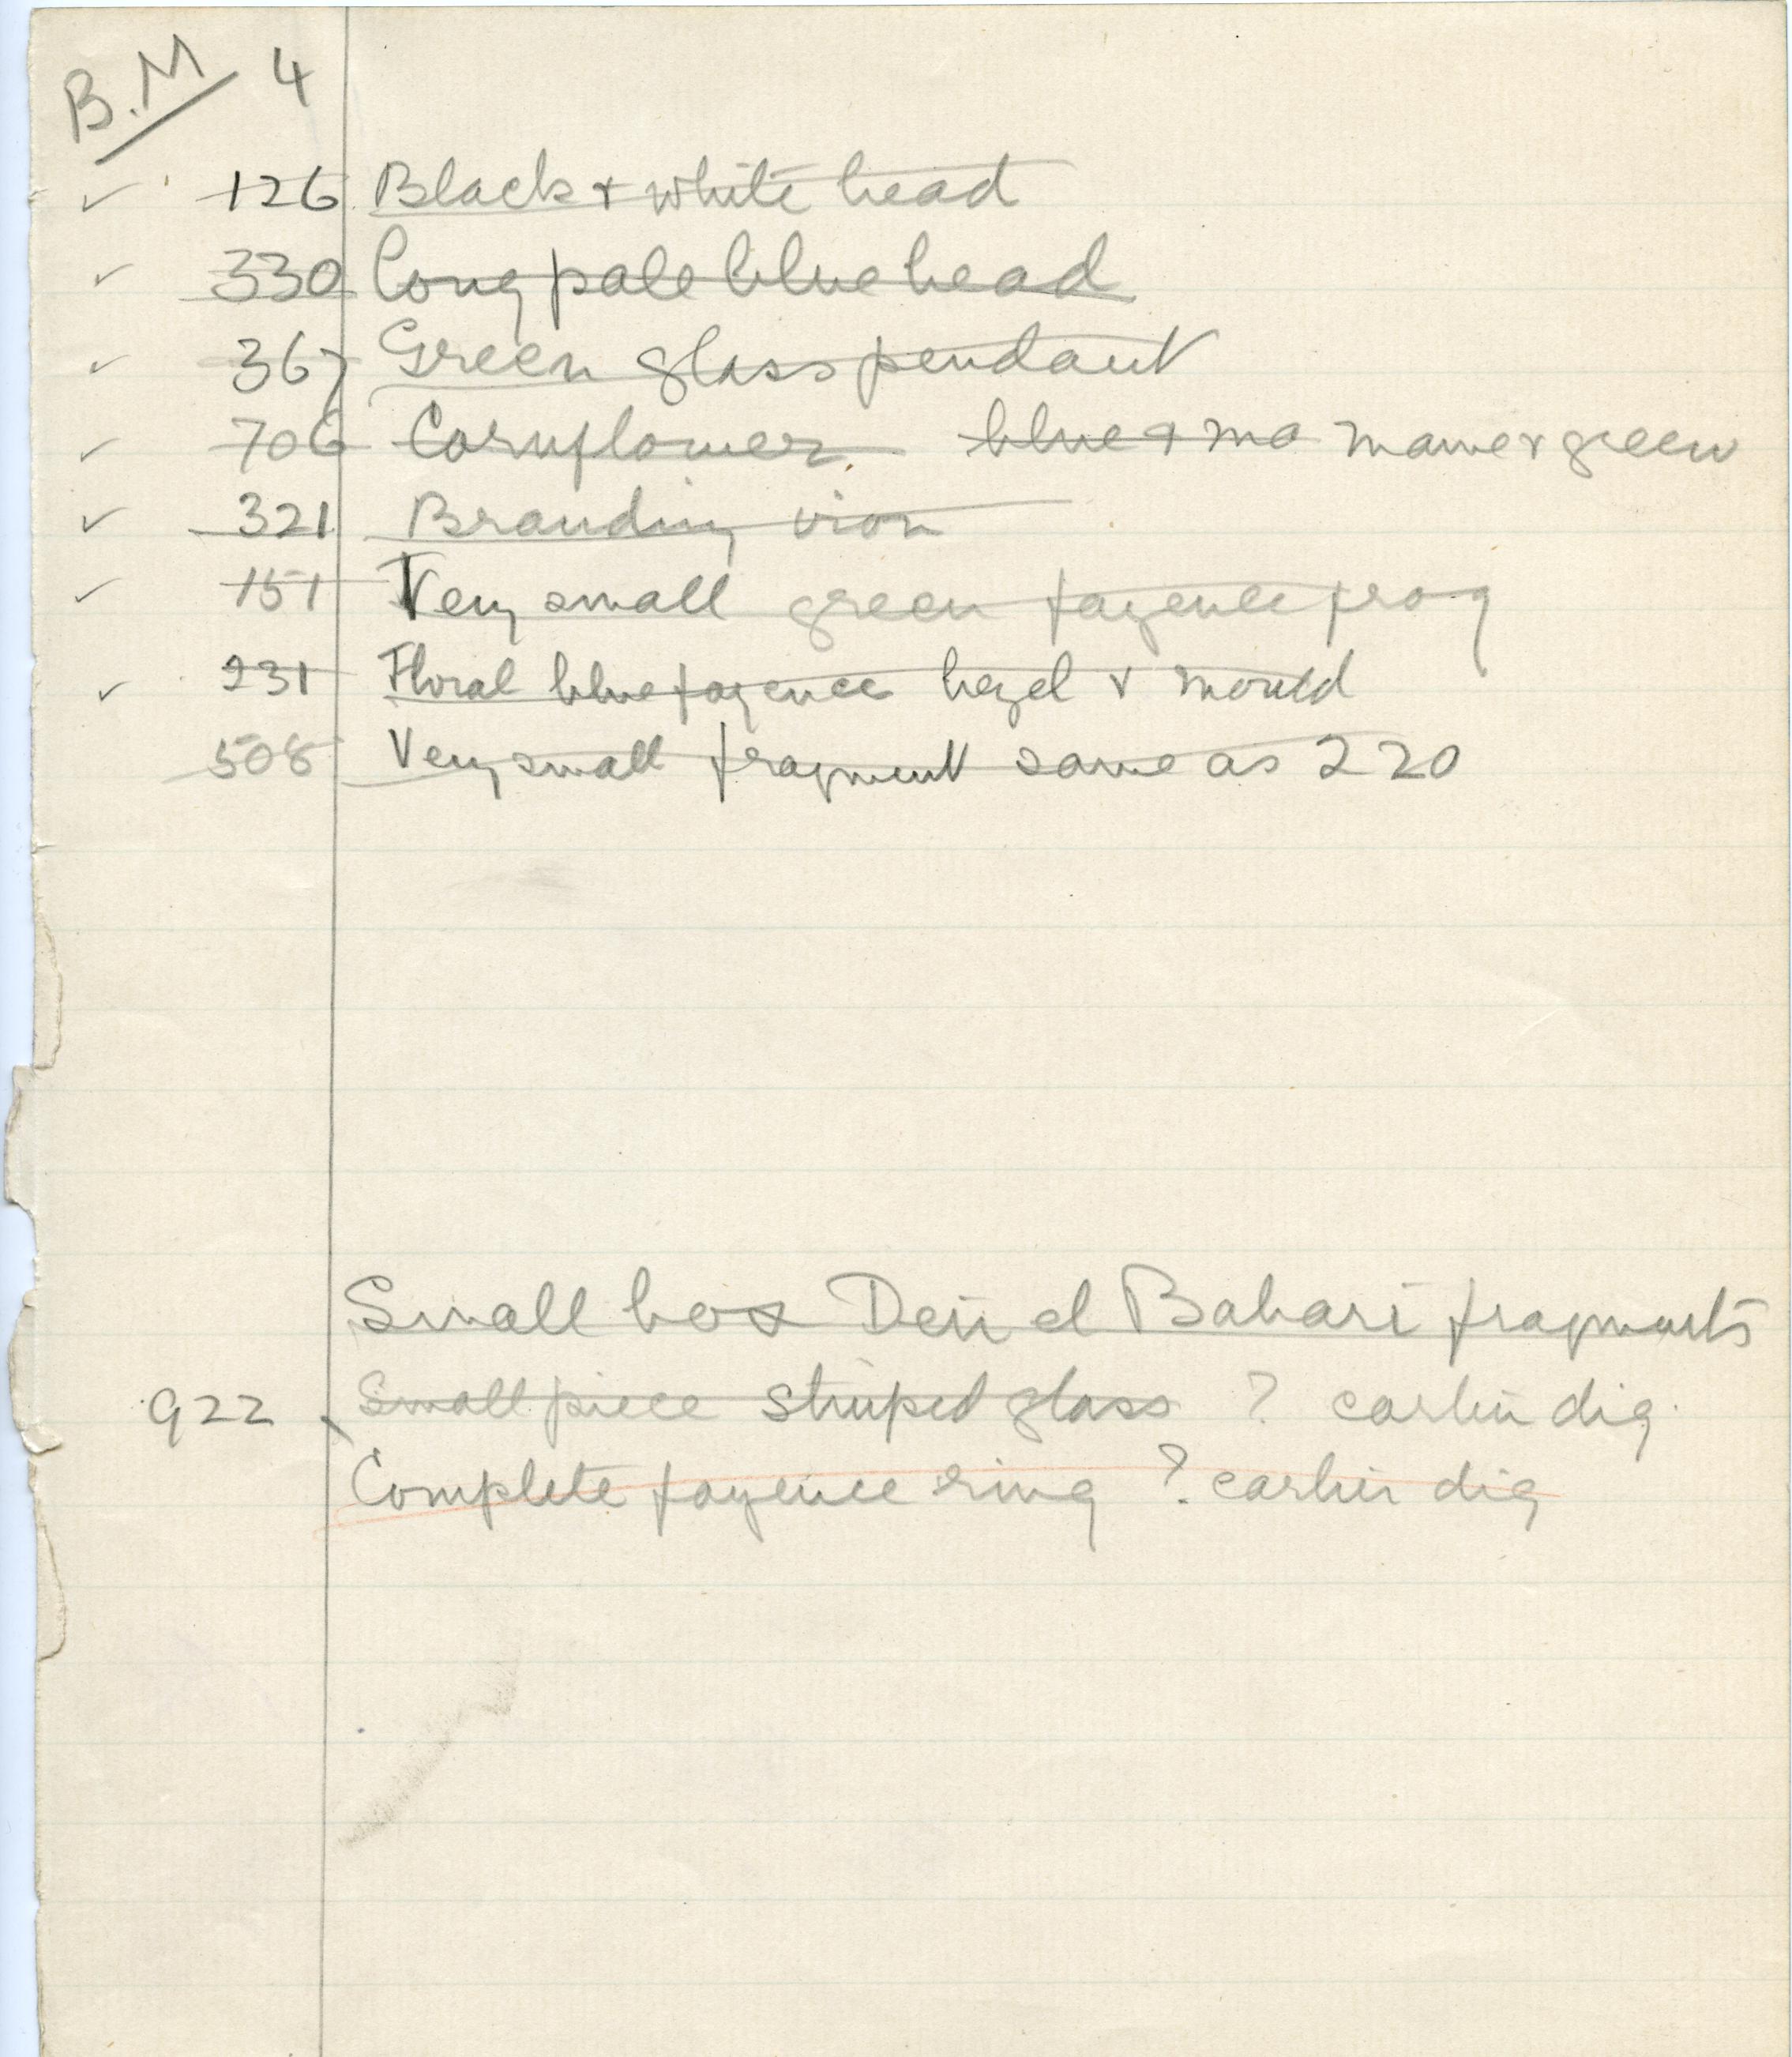 B.M 4
126 Black & white bead
330 Long pale blue bead
367 Green glass pendant
706 Cornflower blue & ma mauve & green
321 Branding iron
151 Very small green fayence frog
231 Floral blue fayence bezel & mould
508 Very small fragment same as 220
Small box Deir el Bahari fragments
922 Small piece striped glass ? earlier dig.
Complete fayence ring ? earlier dig